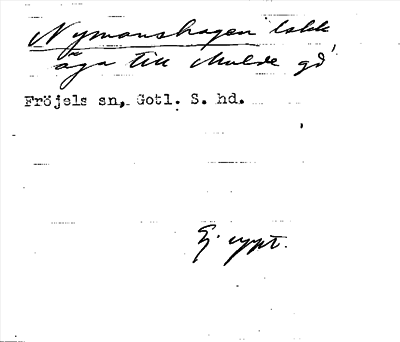 Nymanshagen lskk
äga till Mulde gd
Fröjels sn, Gotl. S. hd.
Ej uppt.